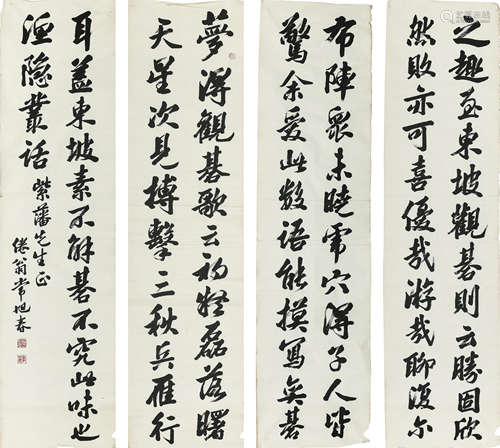 夢得觀碁歌云初疑磊落曙
天星次見搏擊三秋兵雁行
布陣眾未曉虎穴得子人皆
驚余愛此數語能摸寫奕碁
之趣至東坡觀碁則云勝固欣
然敗亦可喜優哉游哉聊復尔
耳蓋東坡素不解碁不究此味也
漁隐叢話
紫藩先生正
倦翁常旭春